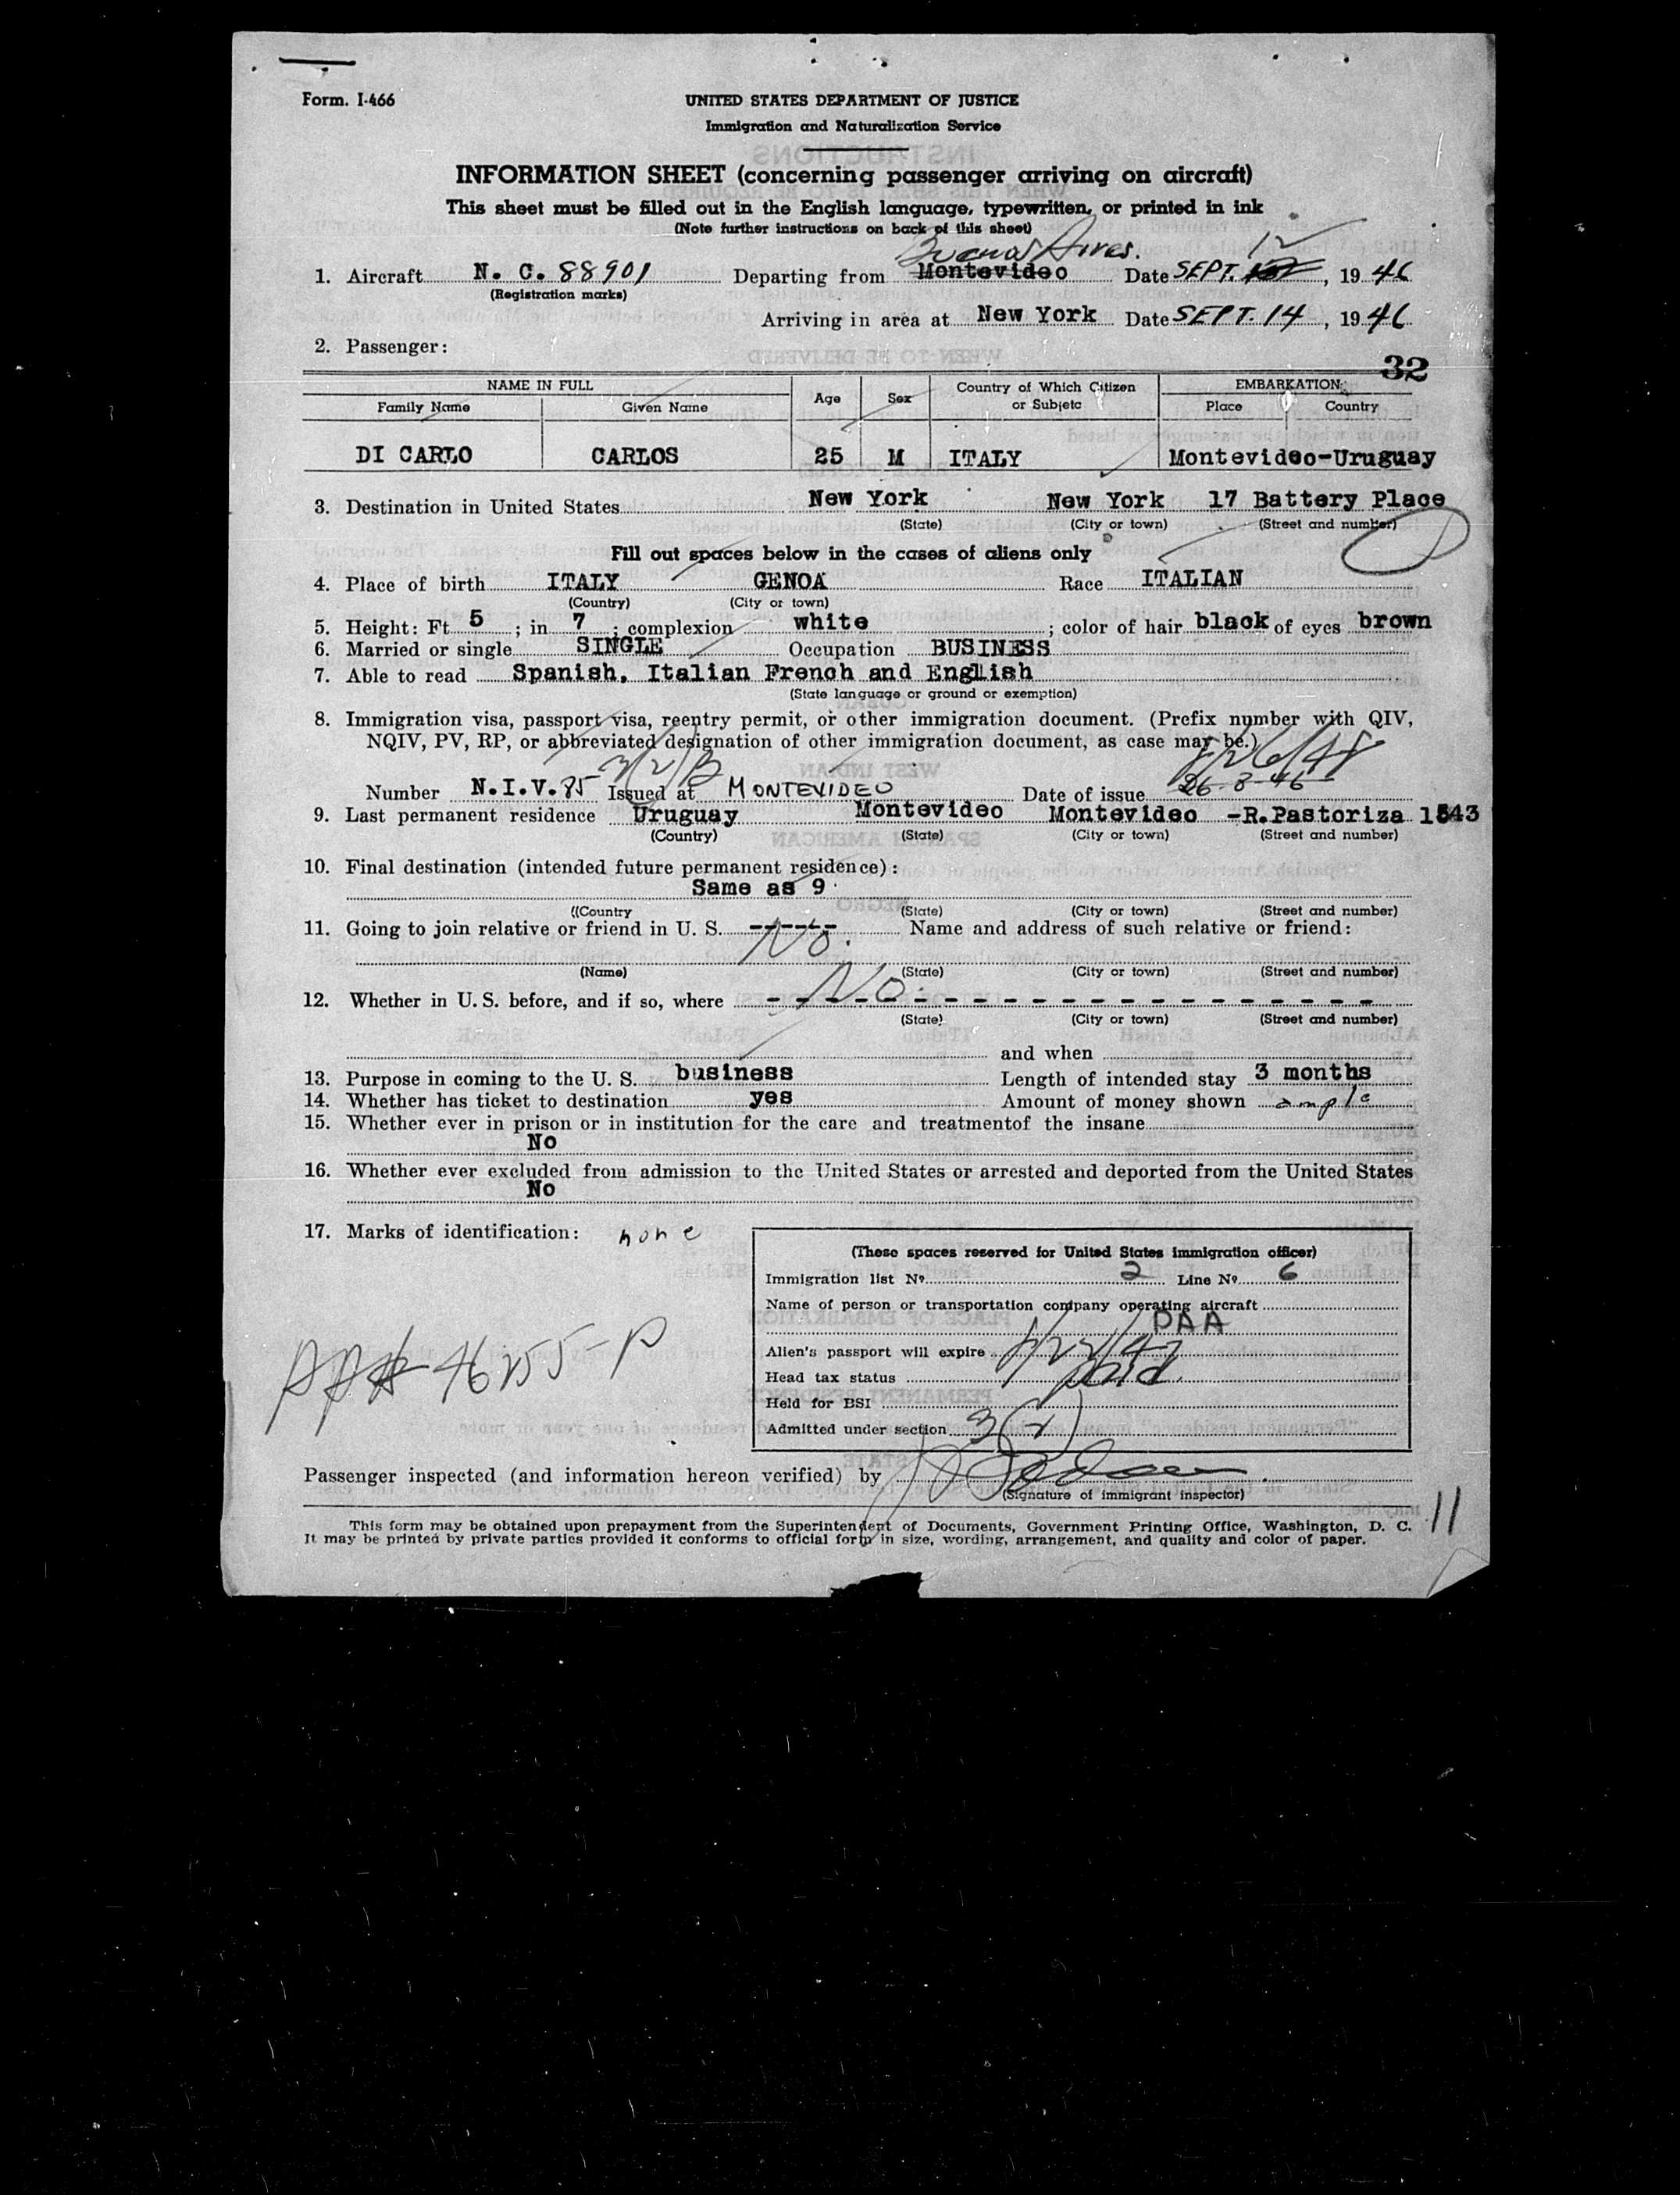 Form. I-466
UNITED STATES DEPARTMENT OF JUSTICE
Immigration and Naturalization Service
INFORMATION SHEET (concerning passenger arriving on aircraft)
This sheet must be filled out in the English language, typewritten, or printed in ink
(Note further instructions on back of this sheet)
Buenos Aires. 12
1. Aircraft N. C. 88901 Departing from Montevideo Date SEPT. , 19 46
(Registration marks)
Arriving in area at New York Date SEPT. 14, 19 46
2. Passenger:
32
NAME IN FULL Age Sex Country of Which Citizen or Subjetc EMBARKATION:
Family Name Given Name Place Country
DI CARLO CARLOS 25 M ITALY Montevideo-Uruguay
3. Destination in United States New York New York 17 Battery Place
(State) (City or town) (Street and number)
Fill out spaces below in the cases of aliens only
4. Place of birth ITALY GENOA Race ITALIAN
(Country) (City or town)
5. Height: Ft 5 ; in 7 ; complexion white ; color of hair black of eyes brown
6. Married or single SINGLE Occupation BUSINESS
7. Able to read Spanish, Italian French and English
(State language or ground or exemption)
8. Immigration visa, passport visa, reentry permit, or other immigration document. (Prefix number with QIV,
NQIV, PV, RP, or abbreviated designation of other immigration document, as case may be.)
Number N.I.V. 85 Issued at MONTEVIDEO Date of issue 26-8-46
9. Last permanent residence Uruguay Montevideo Montevideo -R.Pastoriza 1543
(Country) (State) (City or town) (Street and number)
10. Final destination (intended future permanent residence):
Same as 9
((Country (State) (City or town) (Street and number)
11. Going to join relative or friend in U. S. ------ No. Name and address of such relative or friend:
(Name) (State) (City or town) (Street and number)
12. Whether in U. S. before, and if so, where No.
(State) (City or town) (Street and number)
and when
13. Purpose in coming to the U. S. business Length of intended stay 3 months
14. Whether has ticket to destination yes Amount of money shown ample
15. Whether ever in prison or in institution for the care and treatmentof the insane
No
16. Whether ever excluded from admission to the United States or arrested and deported from the United States
No
17. Marks of identification: none
(These spaces reserved for United States immigration officer)
Immigration list Nº 2 Line Nº 6
Name of person or transportation company operating aircraft
PAA
Alien's passport will expire
Head tax status paid
Held for BSI
Admitted under section 3(2)
Passenger inspected (and information hereon verified) by
(Signature of immigrant inspector)
This form may be obtained upon prepayment from the Superintendent of Documents, Government Printing Office, Washington, D. C.
It may be printed by private parties provided it conforms to official form in size, wording, arrangement, and quality and color of paper.
11